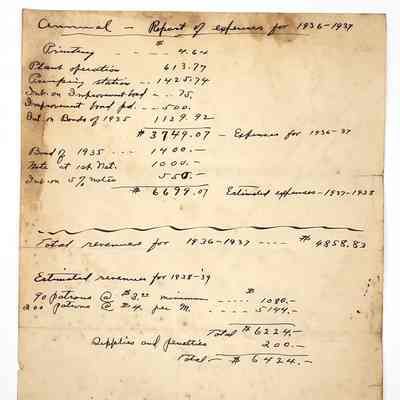 Annual - Report of expenses for 1936-1937
$
Printing - - - - 4.64
Plant operation 613.77
Pumping station - - 1425.74
Int. on Improvement bond - - 75.
Improvement bond pd. - - 500.
Int on Bonds of 1935 1129.92
$ 3749.07 - Expenses for 1936-37
Bond of 1935 - - - 1400.-
Note at 1st Nat. 1000.-
Int on 5% notes 550.-
$ 6699.07 Estimated expenses - 1937-1938
Total revenues for 1936-1937 - - - - $ 4858.83
Estimated revenues for 1938-'39
90 patrons @ $3.00 minimum - - - - - $ 1080.-
200 patrons @ $4. per M. - - - - 5144.-
Total $ 6224.-
Supplies and penalties 200.-
Total - $ 6424.-